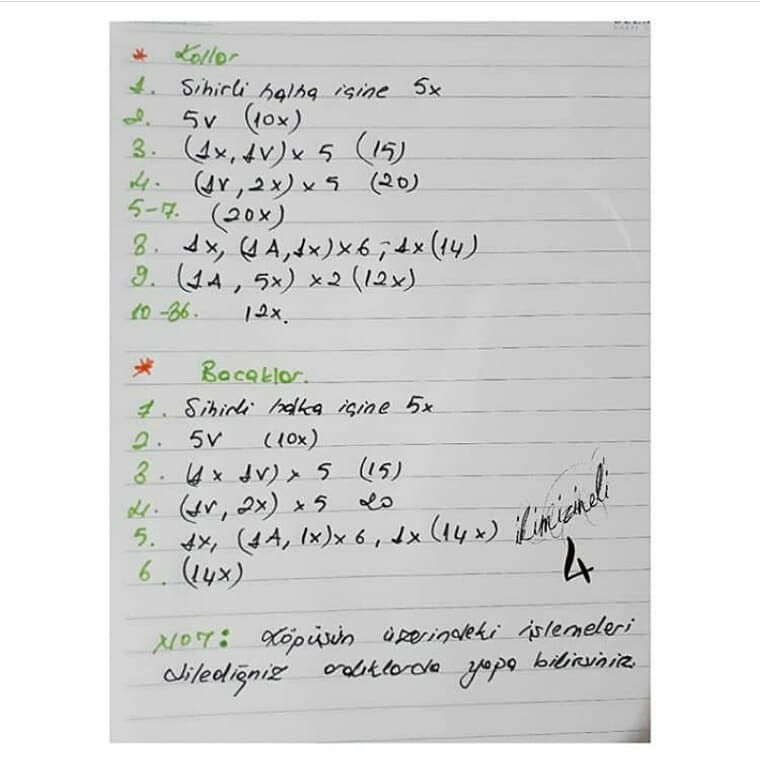 * Kollar
1. Sihirli halka içine 5x
2. 5v (10x)
3. (1x, 1v) x 5 (15)
4. (1v, 2x) x 5 (20)
5-7. (20x)
8. 1x, (1A, 1x) x 6, 1x (14)
9. (1A, 5x) x 2 (12x)
10-36. 12x.
* Bacaklar.
1. Sihirli halka içine 5x
2. 5v (10x)
3. (1x 1v) x 5 (15)
4. (1v, 2x) x 5 20
5. 1x, (1A, 1x) x 6, 1x (14x)
6. (14x)
ikimizineli
4
NOT: Köpüşün üzerindeki işlemeleri
dilediğniz aralıklarda yapa bilirsiniz.